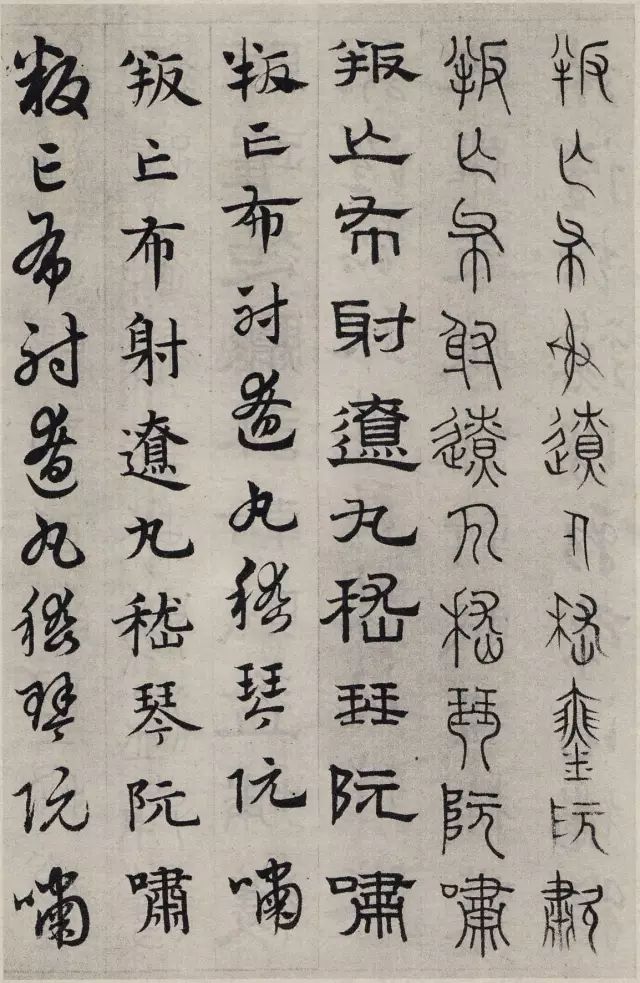 叛亡布射遼丸嵇琴阮嘯
叛亡布射遼丸嵇琴阮嘯
叛亡布射遼丸嵇琴阮嘯
叛亡布射遼丸嵇琴阮嘯
叛亡布射遼丸嵇琴阮嘯
叛亡布射遼丸嵇琴阮嘯